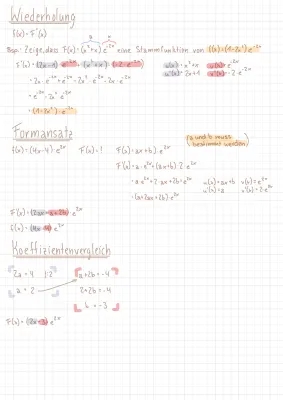 Wiederholung
f(x) = F'(x)
u v
Bsp.: Zeige, dass F(x) = (x²+x) e⁻²ˣ eine Stammfunktion von f(x) = (1-2x²) e⁻²ˣ
F'(x) = (2x+1) e⁻²ˣ + (x²+x) · (-2 e⁻²ˣ) u(x) = x²+x v(x) = e⁻²ˣ
u'(x) = 2x+1 v'(x) = -2 · e⁻²ˣ
= 2x · e⁻²ˣ + e⁻²ˣ - 2x² · e⁻²ˣ - 2x · e⁻²ˣ
= e⁻²ˣ - 2x² · e⁻²ˣ
= (1-2x²) · e⁻²ˣ
Formansatz
(a und b muss
bestimmt werden)
f(x) = (4x-4) · e²ˣ F(x) = ? F(x) = (ax+b) · e²ˣ
F'(x) = a · e²ˣ + (ax+b) · 2 · e²ˣ
= a · e²ˣ + 2 · ax + 2b · e²ˣ u(x) = ax+b v(x) = e²ˣ
u'(x) = a v'(x) = 2 · e²ˣ
= (a+2ax+2b) e²ˣ
F'(x) = (2ax + a+2b) e²ˣ
f(x) = (4x - 4) e²ˣ
Koeffizientenvergleich
2a = 4 |:2 a+2b = -4
a = 2 2+2b = -4
b = -3
F(x) = (2x-3) · e²ˣ